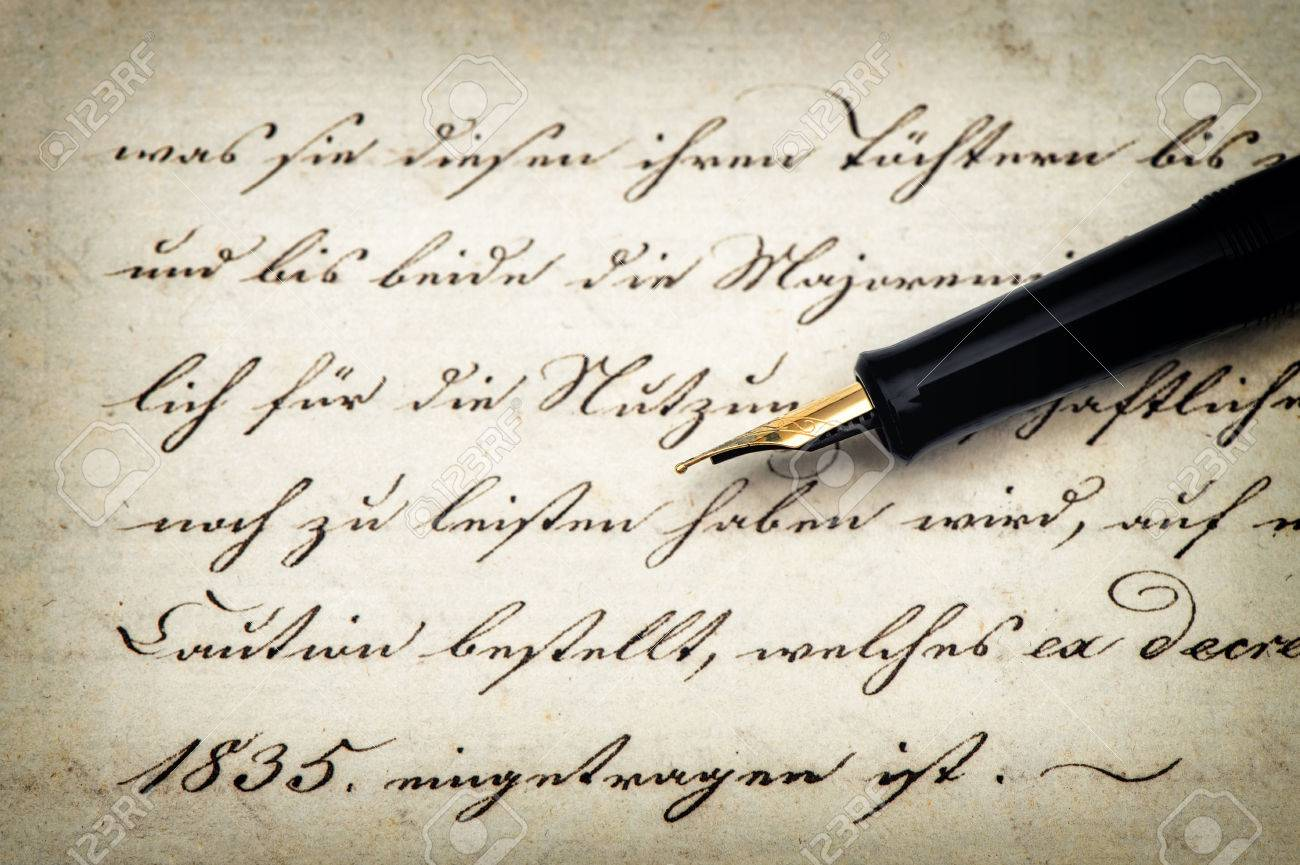 was sie diesen ihren Töchtern bis
und bis beide die Majorenni
lich für die Nutzun haftliche
noch zu leisten haben wird, auf
Caution bestellt, welches ex decre
1835. eingetragen ist.
123RF